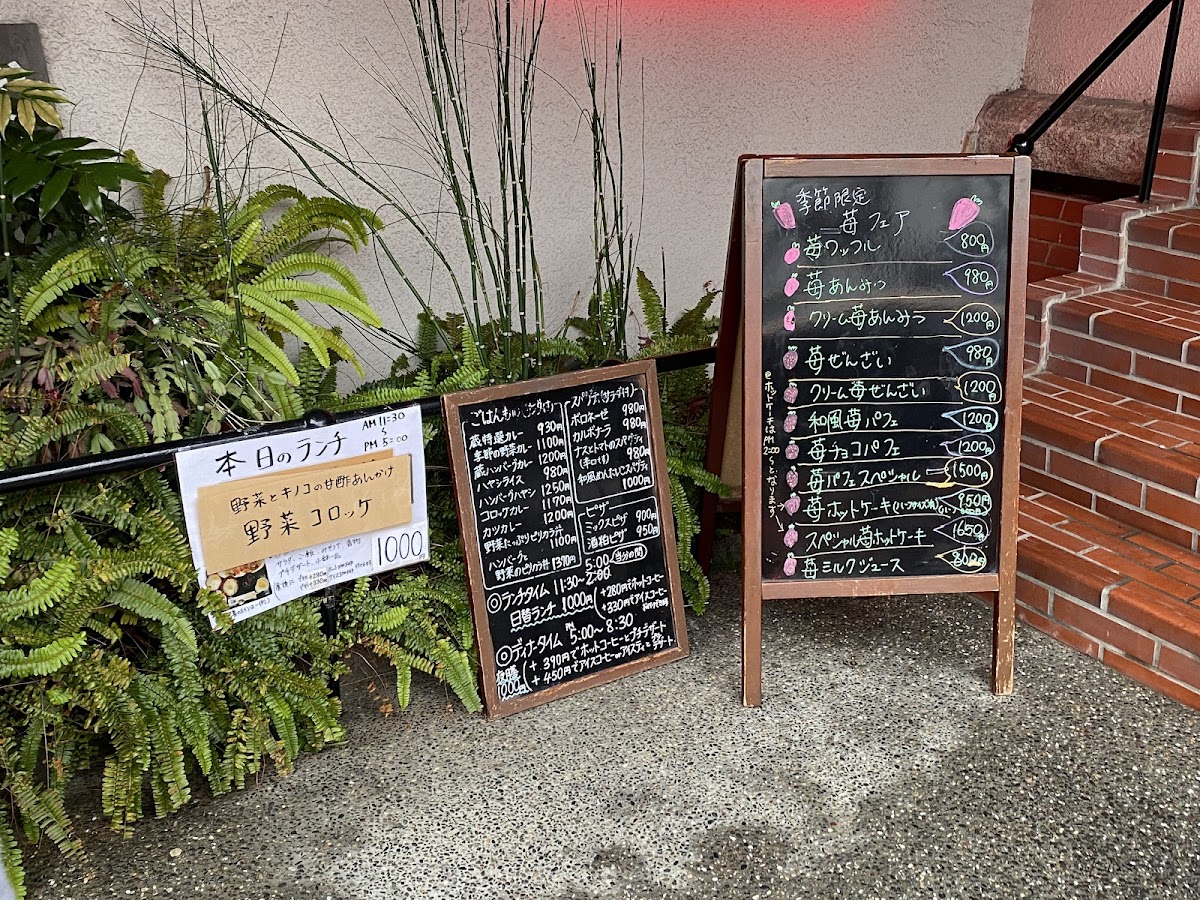 本日のランチ
AM11:30
〜
PM5:00
野菜とキノコの甘酢あんかけ
野菜コロッケ
1000円
ごはんもの
蔵特選カレー 930円
季節の野菜カレー 1100円
蔵ハンバーグカレー 1200円
ハヤシライス 980円
ハンバーグハヤシ 1250円
コロッケカレー 1170円
カツカレー 1200円
野菜たっぷりピリカラ丼 1100円
ハンバーグと
野菜のピリカラ丼 1370円
スパゲティ(サラダ付)
ボロネーゼ 980円
カルボナーラ 980円
ナスとトマトのスパゲティ
(辛口) 980円
和風めんたいこスパゲティ
1000円
ピザー
ミックスピザ 900円
酒粕ピザ 950円
5:00 当分の間
◎ランチタイム 11:30〜2:00
日替ランチ 1000円
+280円でホットコーヒー
+330円でアイスコーヒー
◎ディナータイム PM5:00〜8:30
+390円でホットコーヒーとプチデザート
1000円
+450円でアイスコーヒーorアイスティと
季節限定
苺フェア
苺ワッフル 800円
苺あんみつ 980円
クリーム苺あんみつ 1200円
苺ぜんざい 980円
クリーム苺ぜんざい 1200円
和風苺パフェ 1200円
苺チョコパフェ 1200円
苺パフェスペシャル 1500円
苺ホットケーキ 950円
スペシャル苺ホットケーキ 1650円
苺ミルクジュース 800円
※ホットケーキはPM2:00〜となります